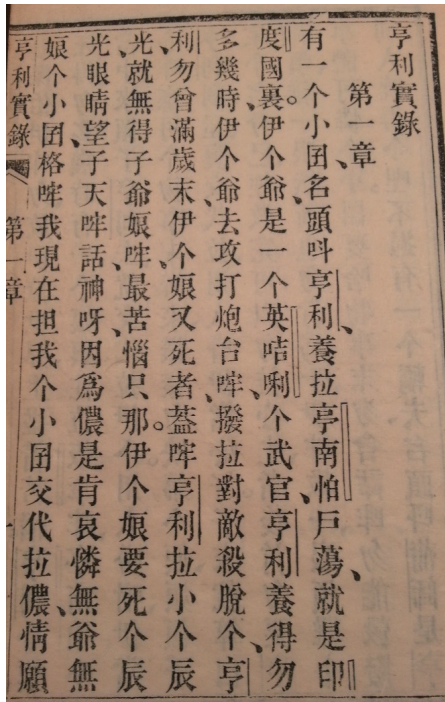 亨利實錄
第一章
有一个小囝、名頭呌亨利、養拉亭南怕戶蕩、就是印
度國裏。伊个爺、是一个英咭唎个武官、亨利養得勿
多幾時、伊个爺去攻打炮台哖、撥拉對敵殺脫个、亨
利勿曾滿歲末、伊个娘又死者、葢哖亨利拉小个辰
光、就無得子爺娘哖、最苦惱只那。伊个娘要死个辰
光、眼睛望子天哖話、神呀、因爲儂是肯哀憐無爺無
娘个小囝格哖、我現在担我个小囝交代拉儂、情願
亨利實錄 第一章